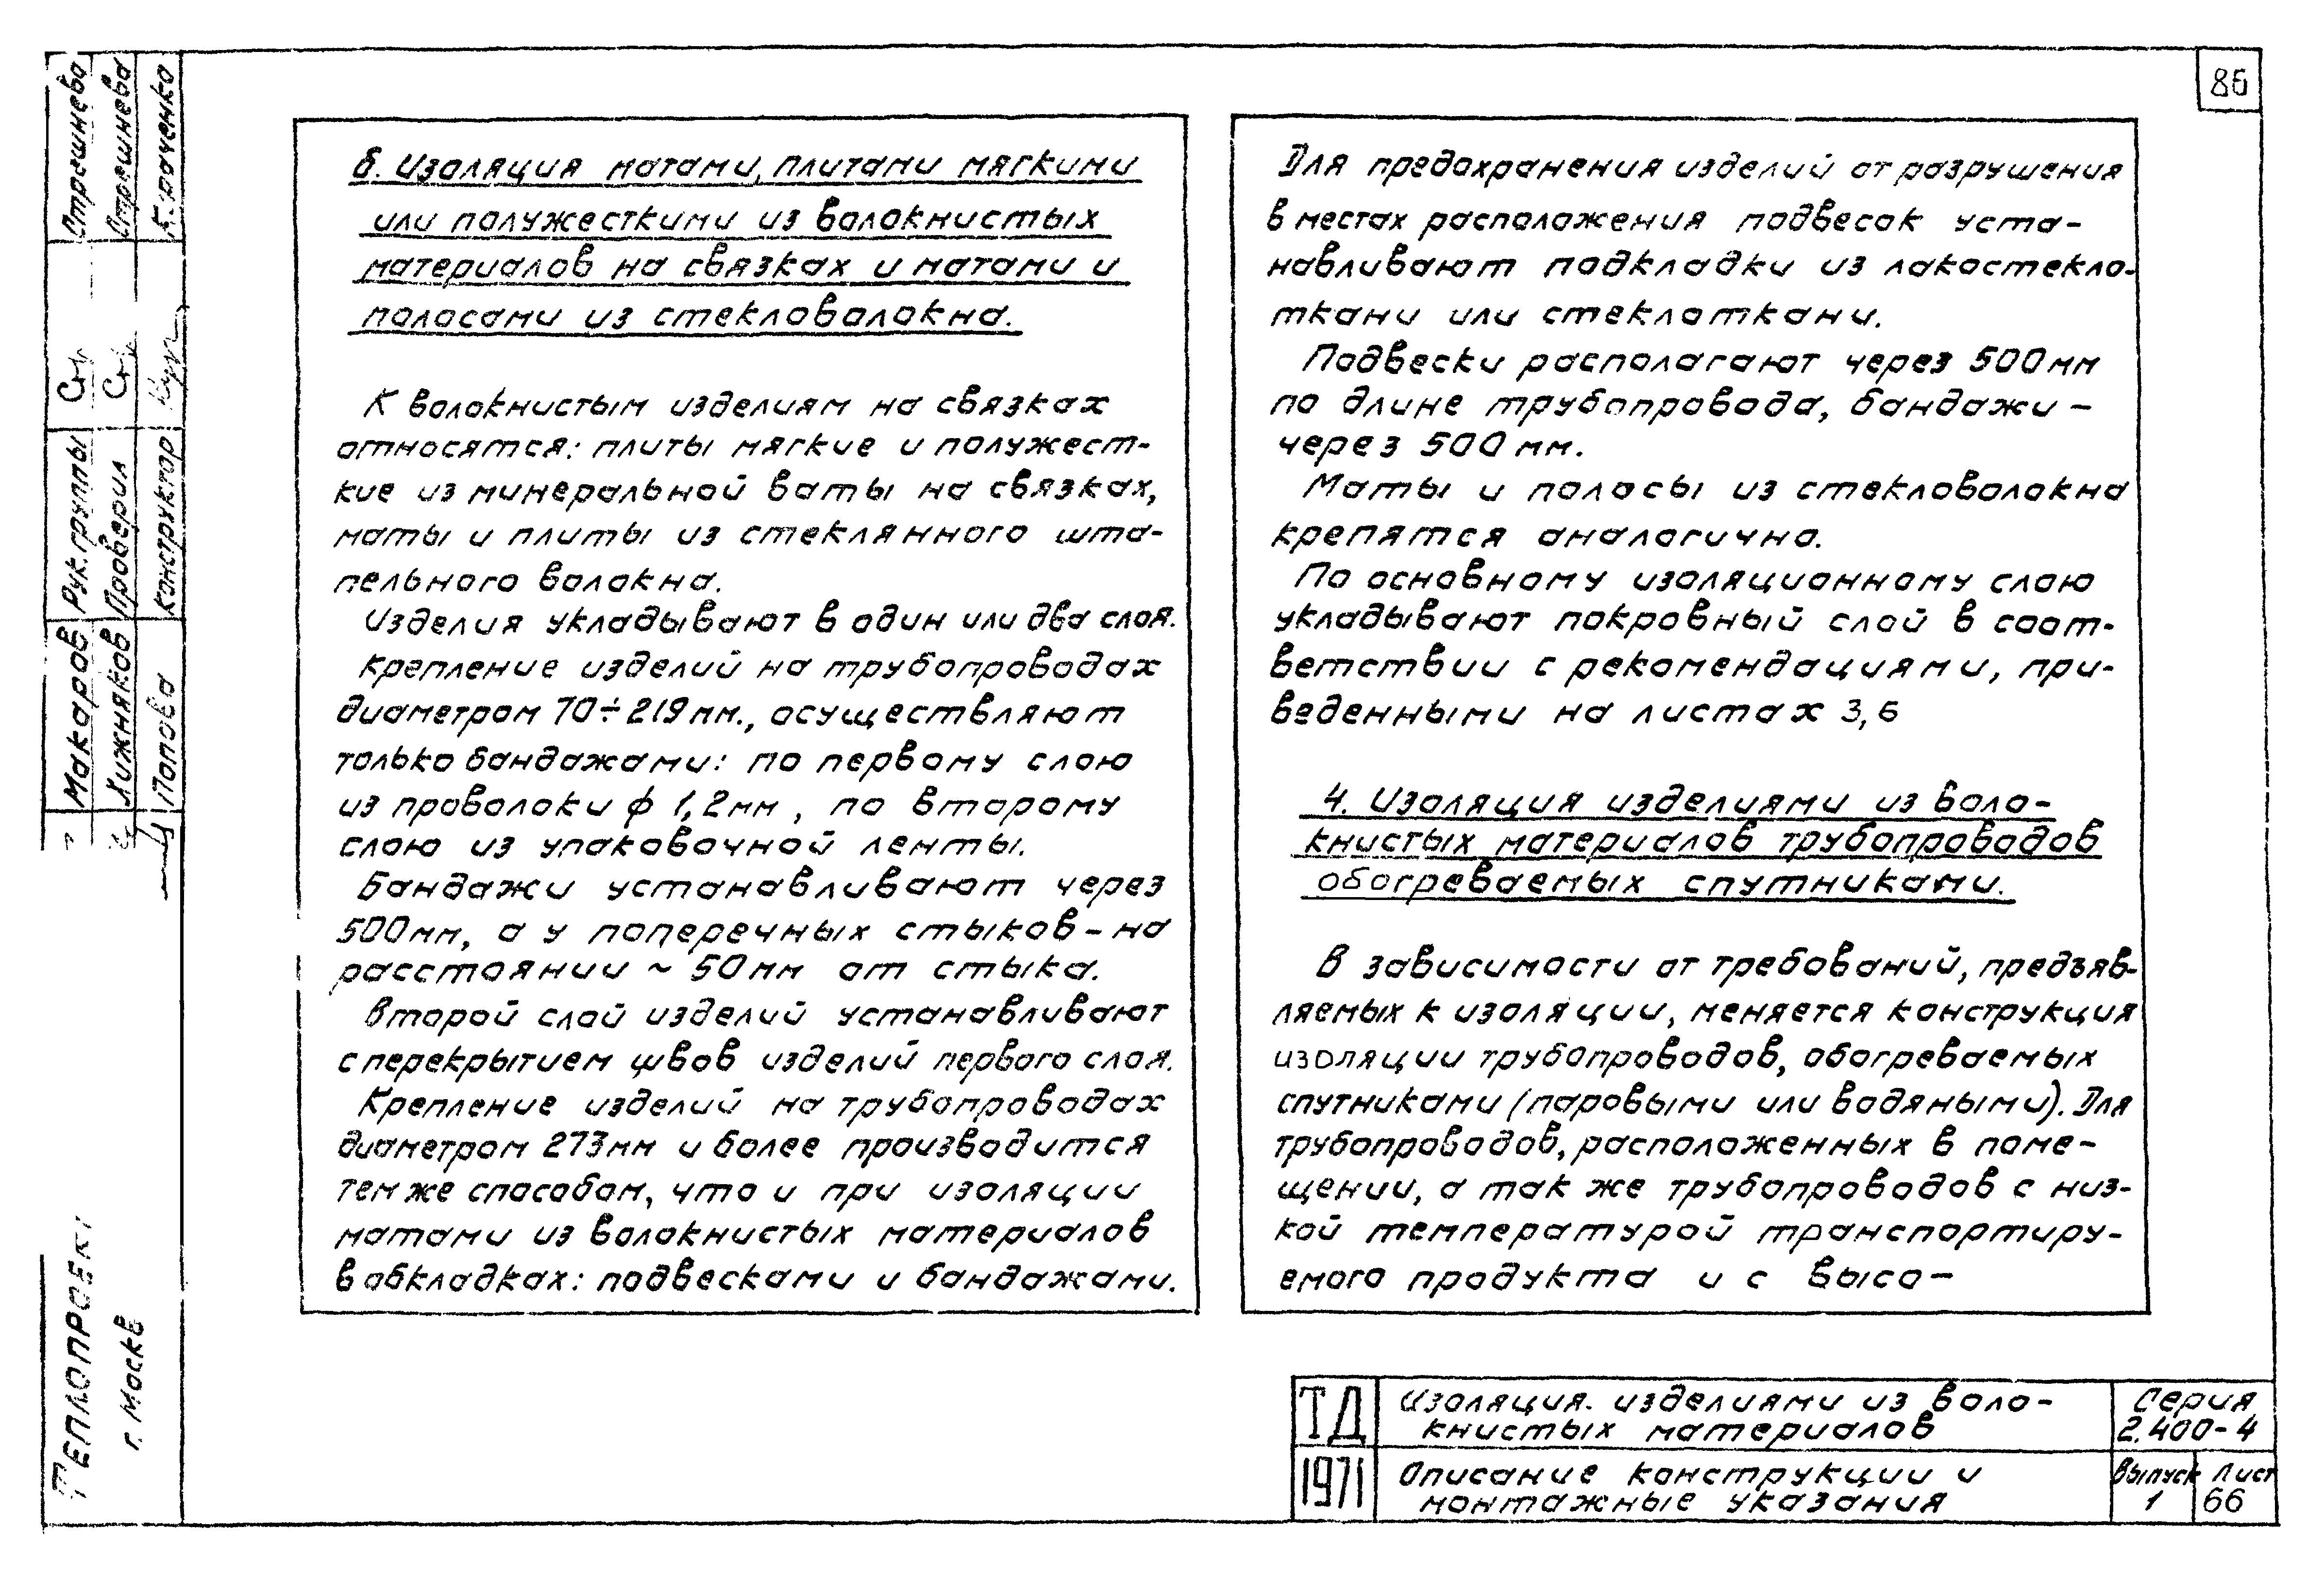 86
б. Изоляция матами, плитами мягкими
или полужесткими из волокнистых
материалов на связках и матами и
полосами из стекловолокна.
К волокнистым изделиям на связках
относятся: плиты мягкие и полужест-
кие из минеральной ваты на связках,
маты и плиты из стеклянного шта-
пельного волокна.
Изделия укладывают в один или два слоя.
Крепление изделий на трубопроводах
диаметром 70÷219 мм., осуществляют
только бандажами: по первому слою
из проволоки ф 1,2 мм, по второму
слою из упаковочной ленты.
Бандажи устанавливают через
500 мм, а у поперечных стыков - на
расстоянии ~ 50 мм от стыка.
Второй слой изделий устанавливают
с перекрытием швов изделий первого слоя.
Крепление изделий на трубопроводах
диаметром 273 мм и более производится
тем же способом, что и при изоляции
матами из волокнистых материалов
в обкладках: подвесками и бандажами.
Для предохранения изделий от разрушения
в местах расположения подвесок уста-
навливают подкладки из лакостекло-
ткани или стеклоткани.
Подвески располагают через 500 мм
по длине трубопровода, бандажи -
через 500 мм.
Маты и полосы из стекловолокна
крепятся аналогично.
По основному изоляционному слою
укладывают покровный слой в соот-
ветствии с рекомендациями, при-
веденными на листах 3,6
4. Изоляция изделиями из воло-
книстых материалов трубопроводов
обогреваемых спутниками.
В зависимости от требований, предъяв-
ляемых к изоляции, меняется конструкция
изоляции трубопроводов, обогреваемых
спутниками (паровыми или водяными). Для
трубопроводов, расположенных в поме-
щении, а так же трубопроводов с низ-
кой температурой транспортиру-
емого продукта и с высо-
ТД
Изоляция. изделиями из воло-
книстых материалов
Серия
2.400-4
1971
Описание конструкции и
монтажные указания
Выпуск
1
Лист
66
Макаров Рук. группы Отрешнева
Хижняков Проверил Отрешнева
Попова конструктор
ТЕПЛОПРОЕКТ
г. Москв